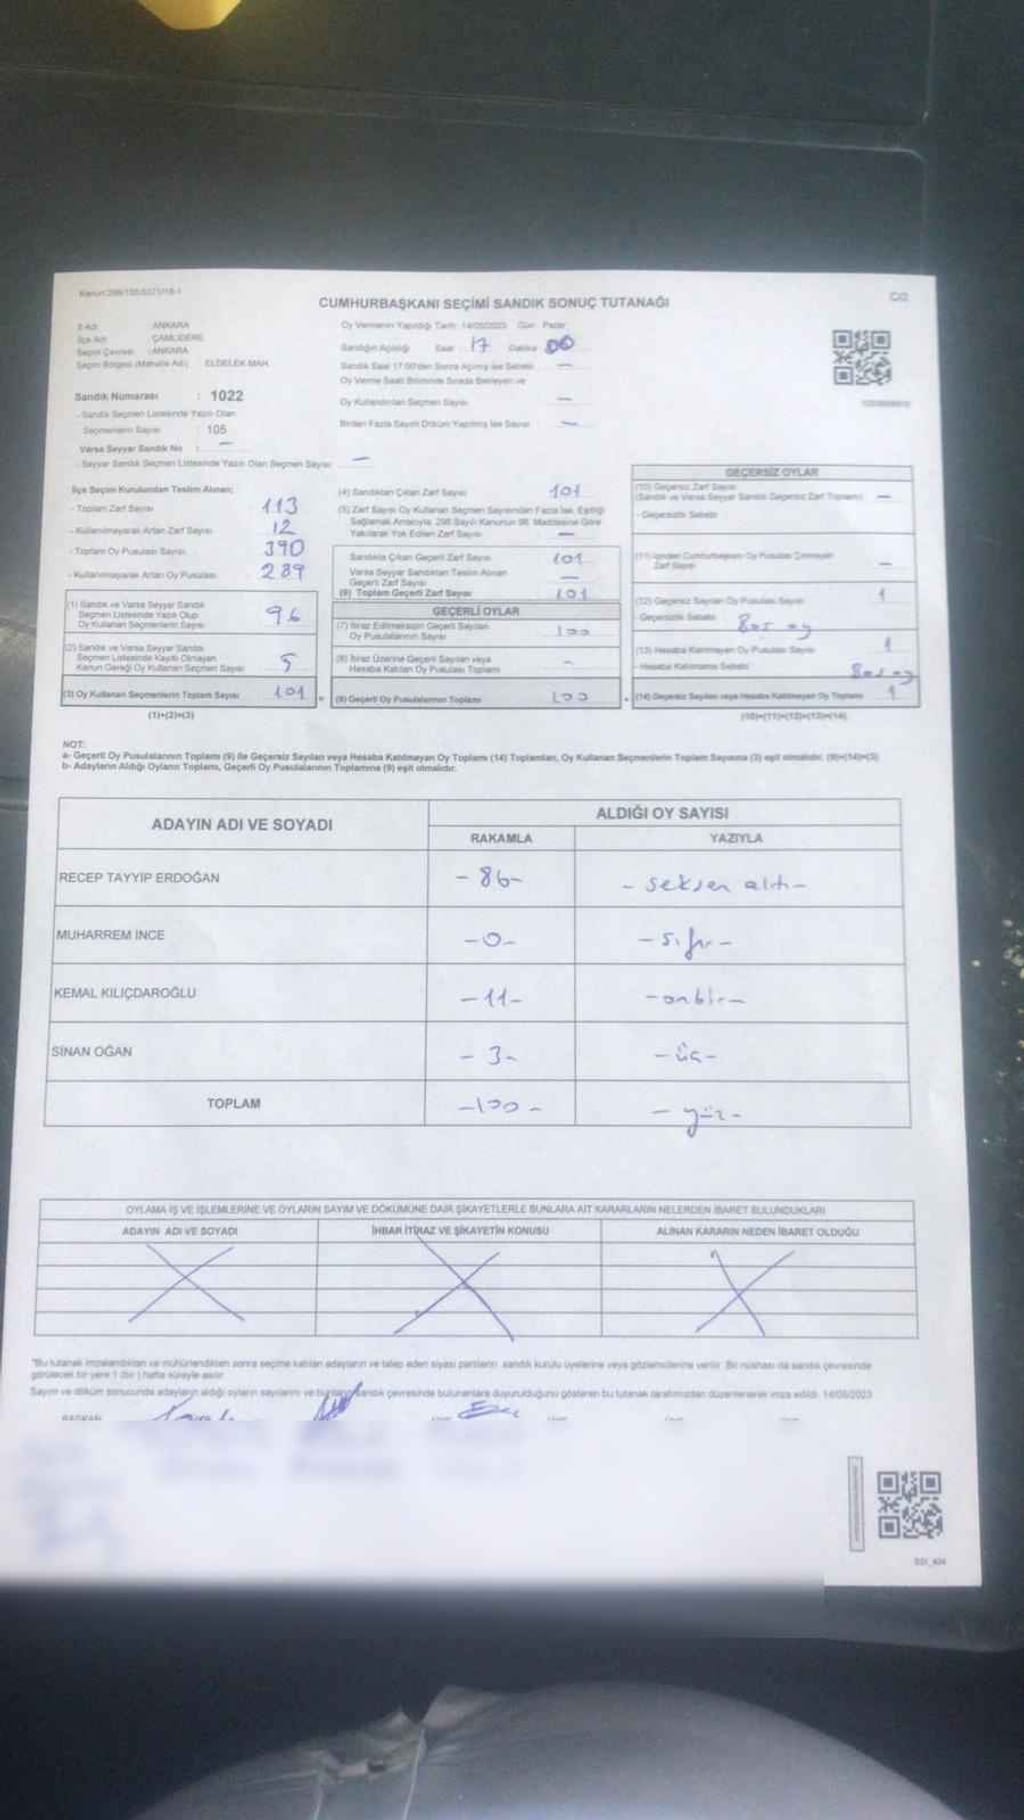 CUMHURBAŞKANI SEÇİMİ SANDIK SONUÇ TUTANAĞI
İl Adı : ANKARA
İlçe Adı : ÇAMLIDERE
Seçim Çevresi : ANKARA
Seçim Bölgesi (Mahalle Adı) : ELDELEK MAH.
Sandık Numarası : 1022
- Sandık Seçmen Listesinde Yazılı Olan
Seçmenlerin Sayısı : 105
Varsa Seyyar Sandık No : —
- Seyyar Sandık Seçmen Listesinde Yazılı Olan Seçmen Sayısı —
Oy Vermenin Yapıldığı Tarih: 14/05/2023 Gün: Pazar
Sandığın Açıldığı Saat : 17 Dakika : 00
Sandık Saat 17:00'den Sonra Açılmış İse Sebebi —
Oy Verme Saati Bitiminde Sırada Bekleyen ve
Oy Kullandırılan Seçmen Sayısı —
Birden Fazla Sayım Döküm Yapılmış İse Sayısı —
İlçe Seçim Kurulundan Teslim Alınan;
- Toplam Zarf Sayısı 113
- Kullanılmayarak Artan Zarf Sayısı 12
- Toplam Oy Pusulası Sayısı 390
- Kullanılmayarak Artan Oy Pusulası 289
(1) Sandık ve Varsa Seyyar Sandık
Seçmen Listesinde Yazılı Olup
Oy Kullanan Seçmenlerin Sayısı 96
(2) Sandık ve Varsa Seyyar Sandık
Seçmen Listesinde Kayıtlı Olmayan
Kanun Gereği Oy Kullanan Seçmen Sayısı 5
(3) Oy Kullanan Seçmenlerin Toplam Sayısı 101
(1)+(2)=(3)
(4) Sandıktan Çıkan Zarf Sayısı 101
(5) Zarf Sayısı Oy Kullanan Seçmen Sayısından Fazla İse, Eşitliği
Sağlamak Amacıyla, 298 Sayılı Kanunun 98. Maddesine Göre
Yakılarak Yok Edilen Zarf Sayısı —
Sandıkta Çıkan Geçerli Zarf Sayısı 101
Varsa Seyyar Sandıktan Teslim Alınan
Geçerli Zarf Sayısı —
(6) Toplam Geçerli Zarf Sayısı 101
GEÇERLİ OYLAR
(7) İtiraz Edilmeksizin Geçerli Sayılan
Oy Pusulalarının Sayısı 100
(8) İtiraz Üzerine Geçerli Sayılan veya
Hesaba Katılan Oy Pusulası Toplamı -
(9) Geçerli Oy Pusulalarının Toplamı 100
GEÇERSİZ OYLAR
(10) Geçersiz Zarf Sayısı
(Sandık ve Varsa Seyyar Sandık Geçersiz Zarf Toplamı) —
- Geçersizlik Sebebi
(11) İçinden Cumhurbaşkanı Oy Pusulası Çıkmayan
Zarf Sayısı —
(12) Geçersiz Sayılan Oy Pusulası Sayısı 1
- Geçersizlik Sebebi Boş oy
(13) Hesaba Katılmayan Oy Pusulası Sayısı 1
- Hesaba Katılmama Sebebi Boş oy
(14) Geçersiz Sayılan veya Hesaba Katılmayan Oy Toplamı 1
(10)+(11)+(12)+(13)=(14)
NOT:
a- Geçerli Oy Pusulalarının Toplamı (9) İle Geçersiz Sayılan veya Hesaba Katılmayan Oy Toplamı (14) Toplamları, Oy Kullanan Seçmenlerin Toplam Sayısına (3) eşit olmalıdır. (9)+(14)=(3)
b- Adayların Aldığı Oyların Toplamı, Geçerli Oy Pusulalarının Toplamına (9) eşit olmalıdır.
ADAYIN ADI VE SOYADI
ALDIĞI OY SAYISI
RAKAMLA YAZIYLA
RECEP TAYYİP ERDOĞAN - 86 - - seksen altı -
MUHARREM İNCE - 0 - - sıfır -
KEMAL KILIÇDAROĞLU - 11 - - onbir -
SİNAN OĞAN - 3 - - üç -
TOPLAM - 100 - - yüz -
OYLAMA İŞ VE İŞLEMLERİNE VE OYLARIN SAYIM VE DÖKÜMÜNE DAİR ŞİKAYETLERLE BUNLARA AİT KARARLARIN NELERDEN İBARET BULUNDUKLARI
ADAYIN ADI VE SOYADI İHBAR İTİRAZ VE ŞİKAYETİN KONUSU ALINAN KARARIN NEDEN İBARET OLDUĞU
"Bu tutanak imzalandıktan ve mühürlendikten sonra seçime katılan adayların ve talep eden siyasi partilerin sandık kurulu üyelerine veya gözlemcilerine verilir. Bir nüshası da sandık çevresinde
görülecek bir yere 1 (bir) hafta süreyle asılır.
Sayım ve döküm sonucunda adayların aldığı oyların sayılarını ve bunların sandık çevresinde bulunanlara duyurulduğunu gösteren bu tutanak tarafımızdan düzenlenerek imza edildi. 14/05/2023